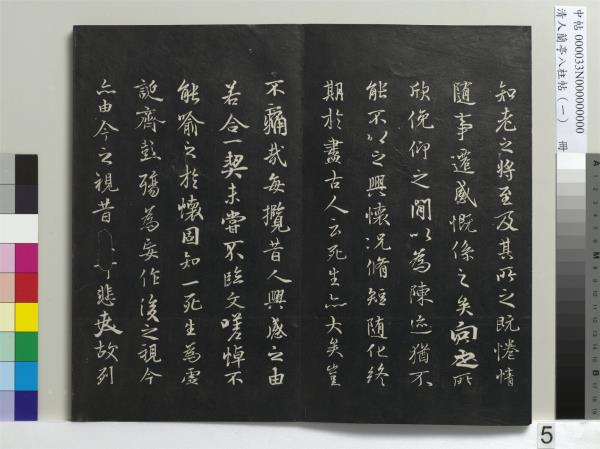 知老之將至及其所之既惓情
隨事遷感慨係之矣向之所
欣俛仰之閒以為陳迹猶不
能不以之興懷况脩短隨化終
期於盡古人云死生亦大矣豈
不痛哉每攬昔人興感之由
若合一契未嘗不臨文嗟悼不
能喻之於懷固知一死生為虛
誕齊彭殤為妄作後之視今
亦由今之視昔 悲夫故列
中帖 000033N000000000
清人蘭亭八柱帖(一) 冊
5